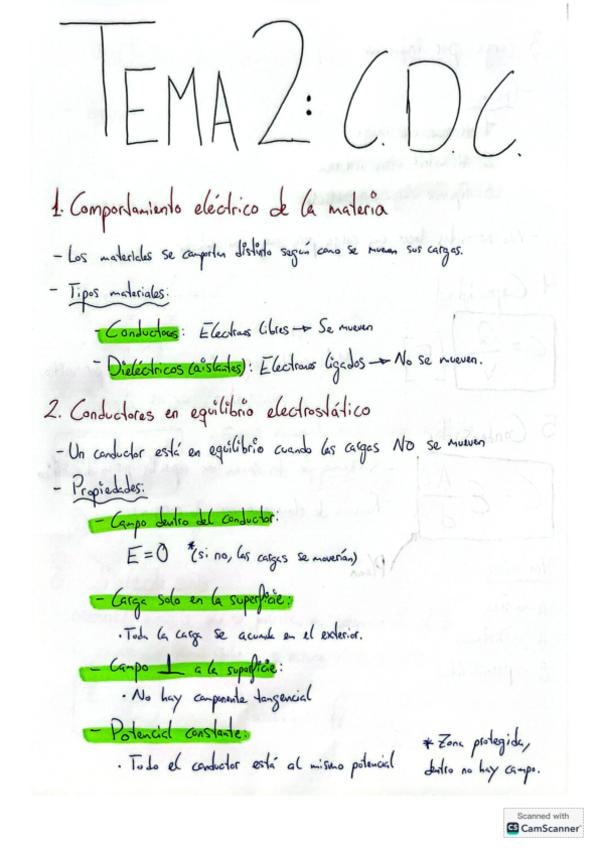 TEMA 2: C.D.C.
1. Comportamiento eléctrico de la materia
- Los materiales se comportan distinto según como se mueven sus cargas.
- Tipos materiales:
- Conductores: Electrones libres → Se mueven
- Dieléctricos (aislantes): Electrones ligados → No se mueven.
2. Conductores en equilibrio electrostático
- Un conductor está en equilibrio cuando las cargas NO se mueven
- Propiedades:
- Campo dentro del conductor:
E = 0 *(si no, las cargas se moverían)
- Carga solo en la superficie:
· Toda la carga se acumula en el exterior.
- Campo ⊥ a la superficie:
· No hay componente tangencial
- Potencial constante:
· Todo el conductor está al mismo potencial
* Zona protegida,
dentro no hay campo.
Scanned with
CS CamScanner